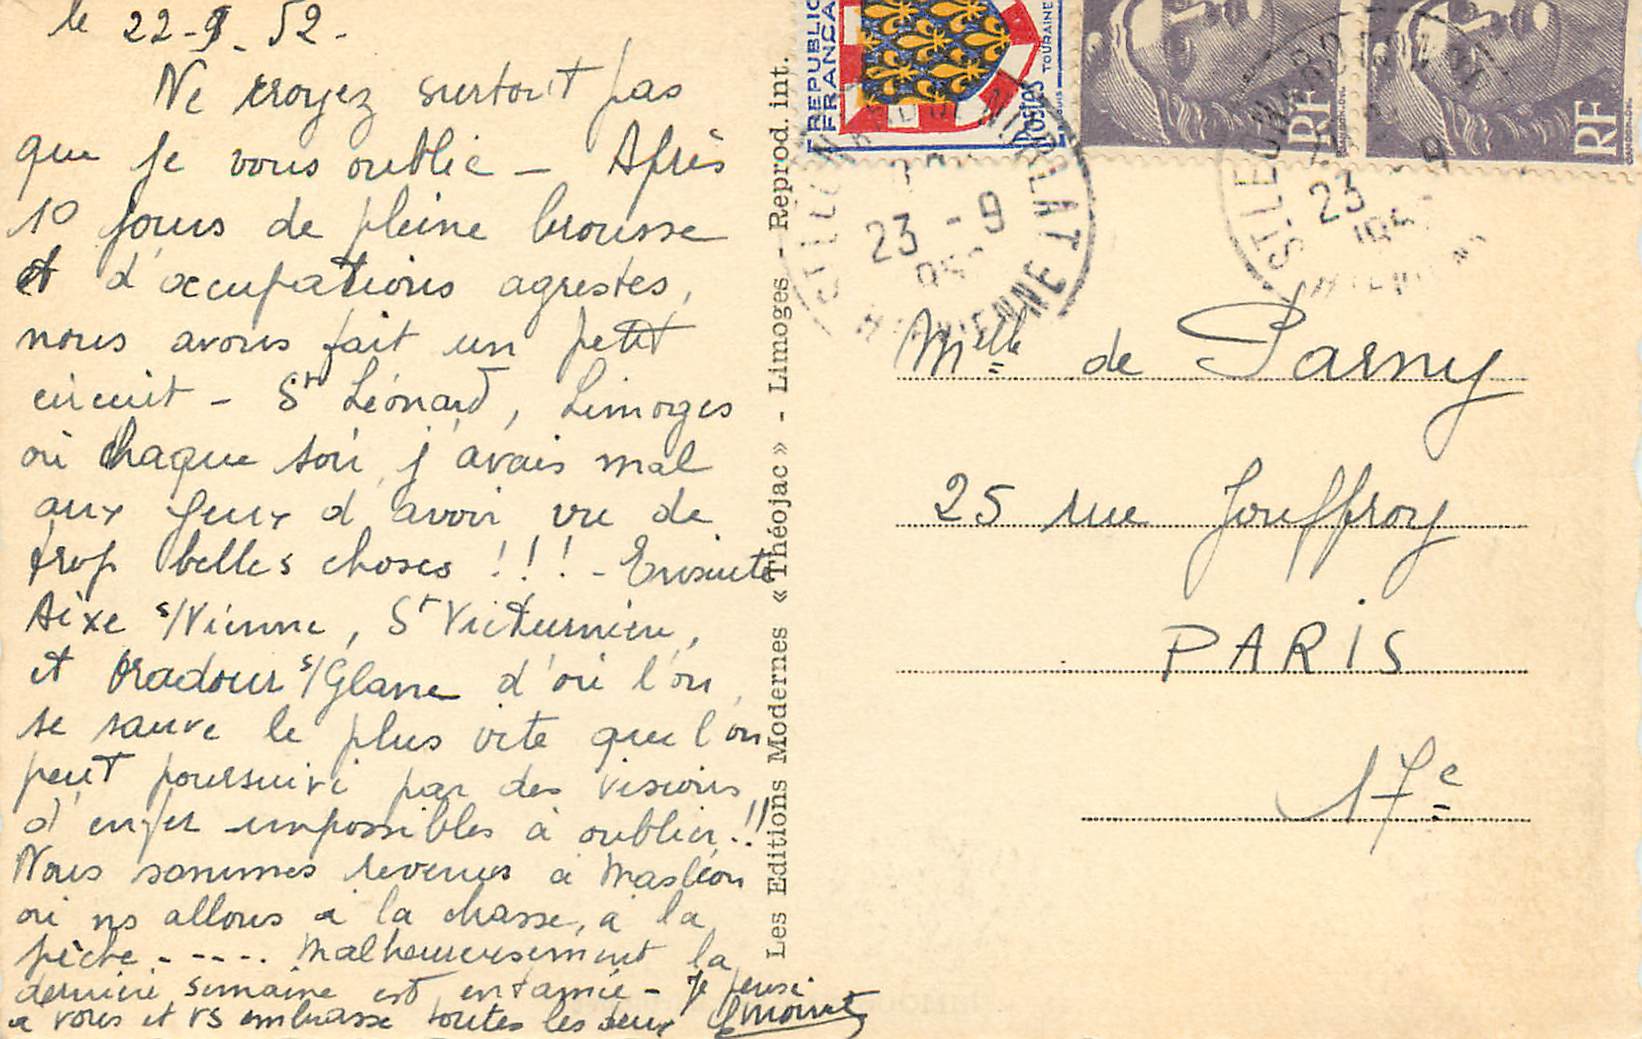 le 22-9-52-
Ne croyez surtout pas
que je vous oublie - Après
10 jours de pleine brousse
et d'occupations agrestes,
nous avons fait un petit
circuit - St Léonard, Limoges
où chaque soir j'avais mal
aux yeux d'avoir vu de
trop belles choses !!! - Ensuite
Aixe s/Vienne, St Victurnien,
et Oradour s/Glane d'où l'on
se sauve le plus vite que l'on
peut poursuivi par des visions
d'enfer impossibles à oublier!!
Nous sommes revenus à Masléon
où ns allons à la chasse, à la
pêche ----- Malheureusement la
dernière semaine est entamée - Je pense
à vous et vs embrasse toutes les deux
Les Editions Modernes « Théojac » - Limoges - Reprod. int.
REPUBLIQ
FRANCA
Postes
TOURAINE
RF
RF
23 - 9
23 9
Melle de Parny
25 rue Jouffroy
PARIS
17e